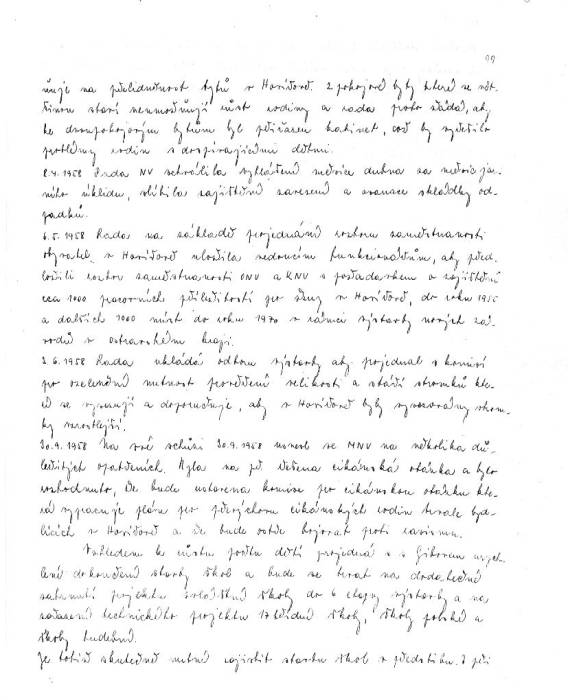 99
ňuje na přelidněnost bytů v Havířově. 2 pokojové byty které se vět-
šinou staví neumožňují růst rodiny a rada proto žádá, aby
ke dvoupokojovým bytům byl přičleněn kabinet, což by vyřešilo
problémy rodin s dospívajícími dětmi.
8.4.1958 Rada NV schválila vyhlášení měsíce dubna za měsíc jar-
ního úklidu, slíbila zajištění zavezení a srovnání skládky od-
padků.
6.5.1958 Rada na základě projednání rozboru zaměstnanosti
obyvatel v Havířově uložila vedoucím funkcionářům, aby před-
ložili rozbor zaměstnanosti ONV a KNV s požadavkem o zajištění
cca 1000 pracovních příležitostí pro ženy v Havířově, do roku
a dalších 1000 míst do roku 1970 v rámci výstavby nových zá-
vodů v ostravském kraji.
2.6.1958 Rada ukládá odboru výstavby aby projednal s komisí
pro ozelenění nutnost prověření velikosti a stáří stromků kte-
ré se vysazují a doporučuje, aby v Havířově byly vysazovány strom-
ky vzrostlejší.
30.9.1958 Na své schůzi 30.9.1958 usnesl se MNV na několika dů-
ležitých opatřeních. Byla na př. řešena cikánská otázka a bylo
rozhodnuto, že bude ustavena komise pro cikánskou otázku kte-
rá vypracuje plán pro převýchovu cikánských rodin trvale byd-
lících v Havířově a že bude ostře bojovat proti rasismu.
Vzhledem ke růstu počtu dětí projedná s s. Giborem urych-
lené dokončení stavby škol a bude se trvat na dodatečné
zahrnutí projektu zvláštní školy do 6 etapy výstavby a na
zařazení technického projektu 17 třídní školy, školy polské a
školy hudební.
Je totiž skutečně nutné zajistit stavbu škol v předstihu. I při